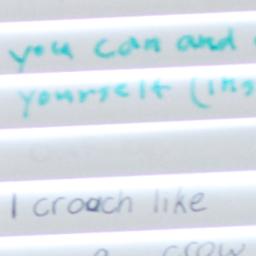 you can and
yourself (ins
I croach like
a crow